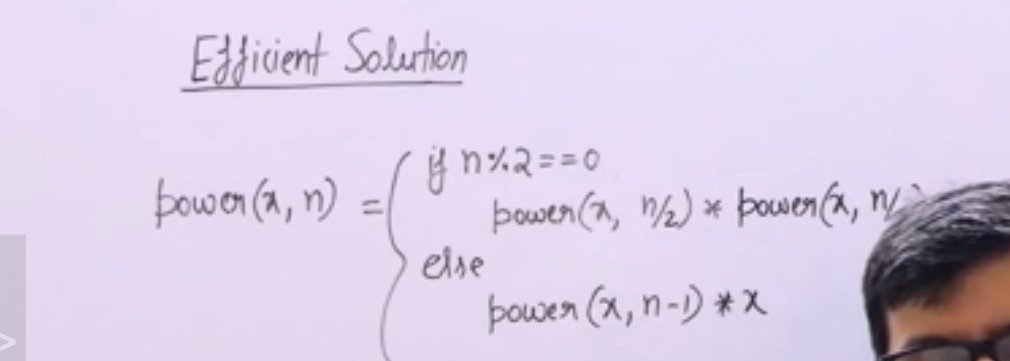 Efficient Solution
if n%2==0
power(x, n) =
power(x, n/2) * power(x, n/
else
power(x, n-1) * x